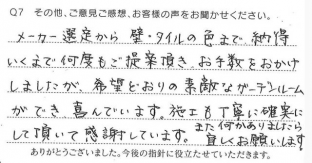 Q7 その他、ご意見ご感想、お客様の声をお聞かせください。
メーカー選定から壁・タイルの色まで納得
いくまで何度もご提案頂き、お手数をおかけ
しましたが、希望どおりの素敵なガーデンルーム
ができ喜んでいます。施工も丁寧に確実に
して頂いて感謝しています。また何かありましたら
宜しくお願いします
ありがとうございました。今後の指針に役立たせていただきます。